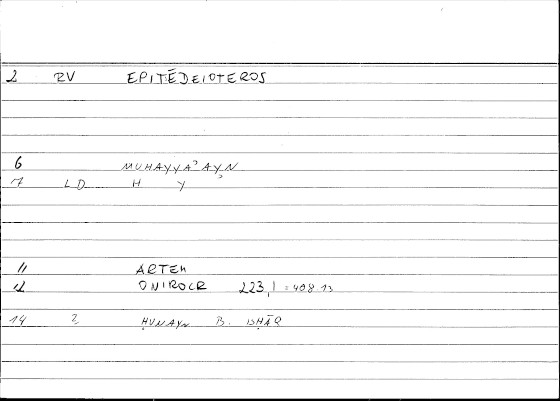 2 RV EPITĒDEIOTEROS
6 MUHAYYAʾAYN
7 LD H Yʾ
11 ARTEM
12 ONIROCR 223,1 = 408 13
14 2 ḤUNAYN B. ISḤĀQ